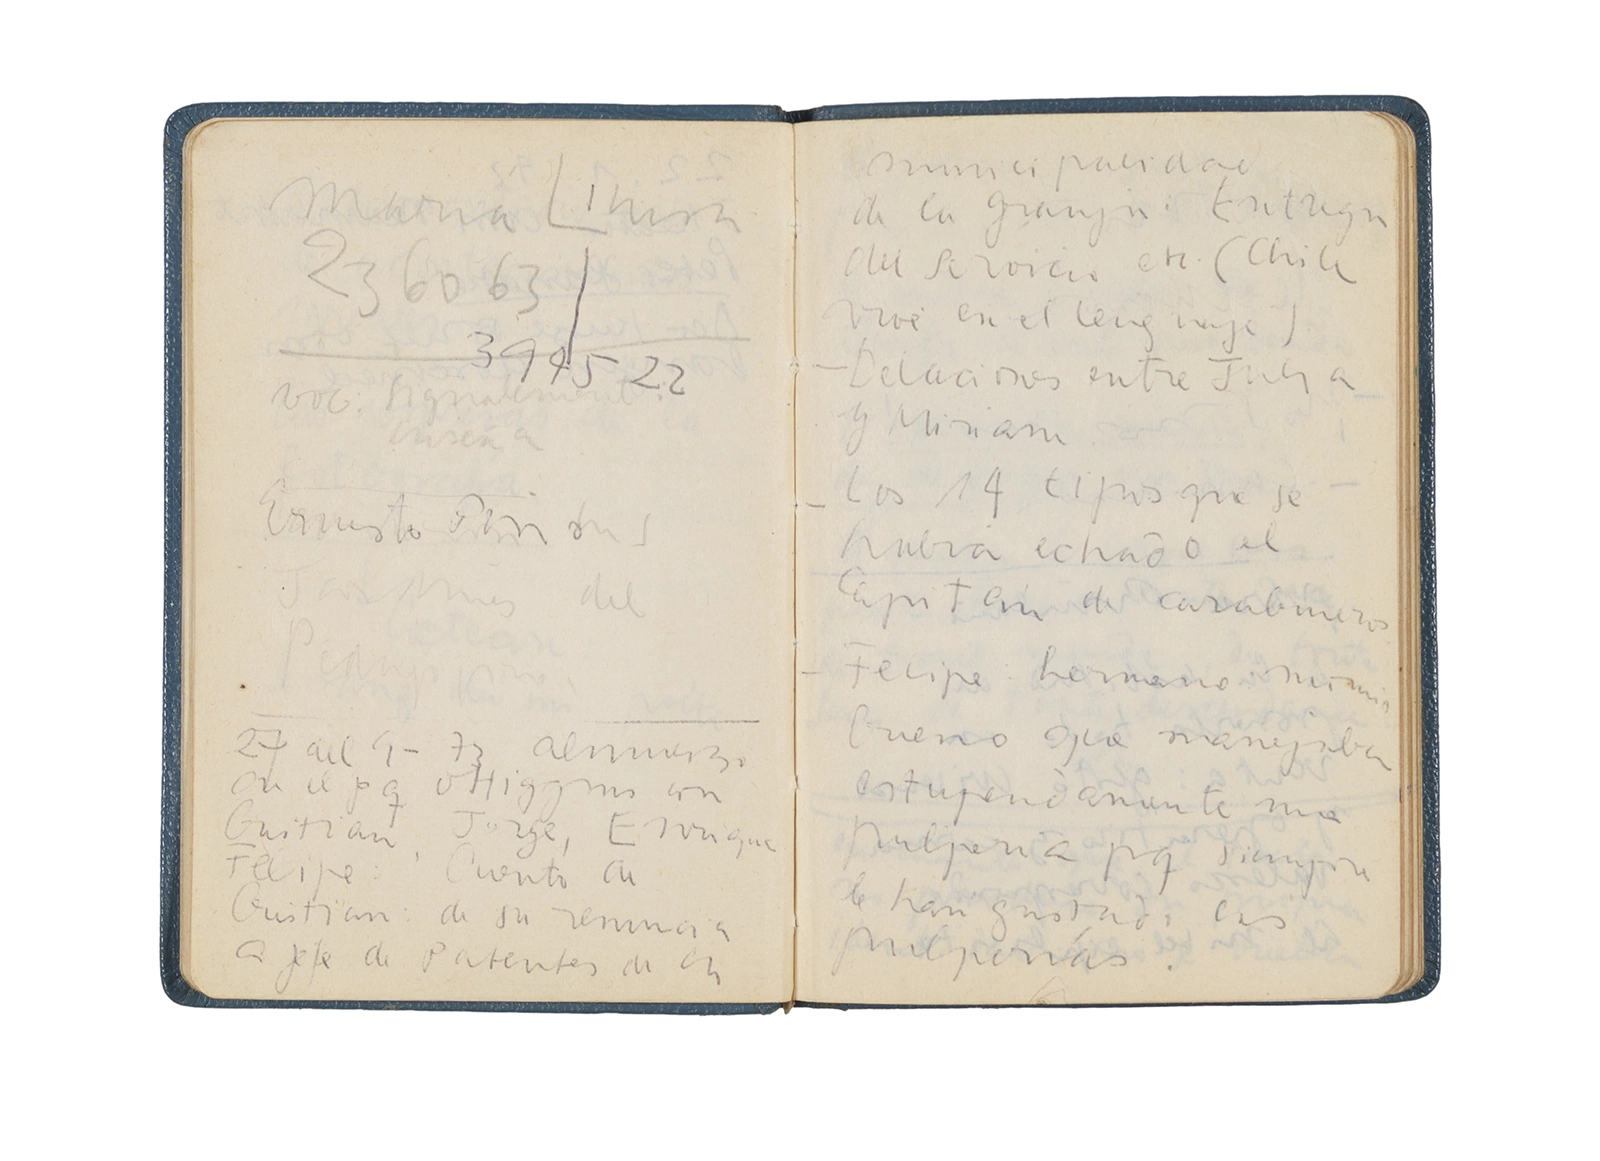 Maria Luisa
236063
394522
voc:
Ernesto
del
27 del 9-73 almuerzo
en el pq OHiggins con
Cristian, Jorge, Enrique
Felipe: Cuento de
Cristian: de su renuncia
a jefe de Patentes de la
municipalidad
de la Granja: Entrega
del Servicio etc. (Chile
vive en el lenguaje)
— Delaciones entre Julia
y Miriam
— Los 14 tipos que se
habia echado el
Capitan de carabineros.
— Felipe: hermano
bueno que manejaba
estupendamente una
pulperia pq siempre
le han gustado las
pulperias.